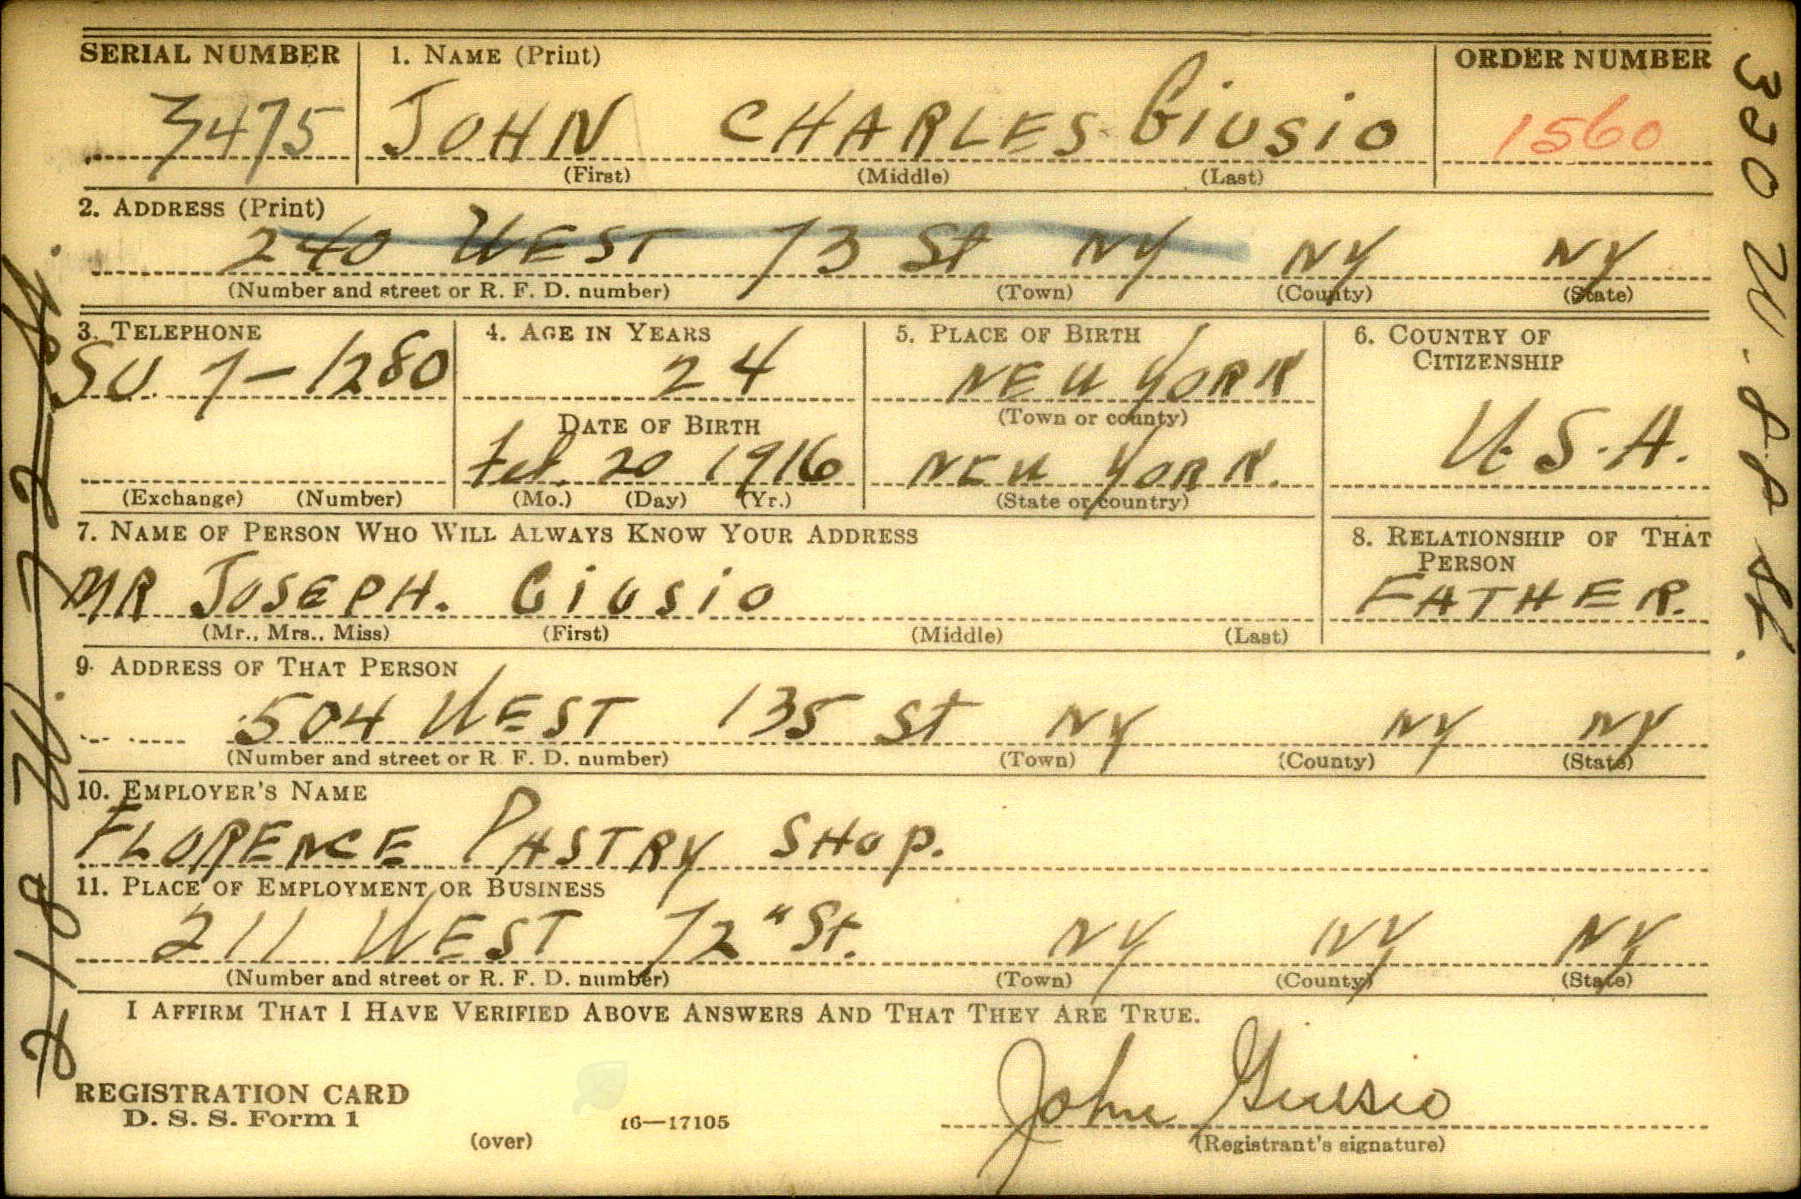 SERIAL NUMBER 1. NAME (Print) ORDER NUMBER
3475 JOHN CHARLES GIUSIO 1560
(First) (Middle) (Last)
2. ADDRESS (Print)
240 WEST 73 St NY NY NY
(Number and street or R. F. D. number) (Town) (County) (State)
3. TELEPHONE 4. AGE IN YEARS 5. PLACE OF BIRTH 6. COUNTRY OF CITIZENSHIP
SU. 7-1280 24 NEW YORK
(Town or county)
DATE OF BIRTH U.S.A.
Feb. 20 1916 NEW YORK.
(Exchange) (Number) (Mo.) (Day) (Yr.) (State or country)
7. NAME OF PERSON WHO WILL ALWAYS KNOW YOUR ADDRESS 8. RELATIONSHIP OF THAT PERSON
MR JOSEPH. GIUSIO FATHER.
(Mr., Mrs., Miss) (First) (Middle) (Last)
9. ADDRESS OF THAT PERSON
504 WEST 135 St NY NY NY
(Number and street or R. F. D. number) (Town) (County) (State)
10. EMPLOYER'S NAME
FLORENCE PASTRY SHOP.
11. PLACE OF EMPLOYMENT OR BUSINESS
211 WEST 72" St. NY NY NY
(Number and street or R. F. D. number) (Town) (County) (State)
I AFFIRM THAT I HAVE VERIFIED ABOVE ANSWERS AND THAT THEY ARE TRUE.
REGISTRATION CARD John Giusio
D. S. S. Form 1 16—17105
(over) (Registrant's signature)
218 W. 72 St.
330 W. 88 St.